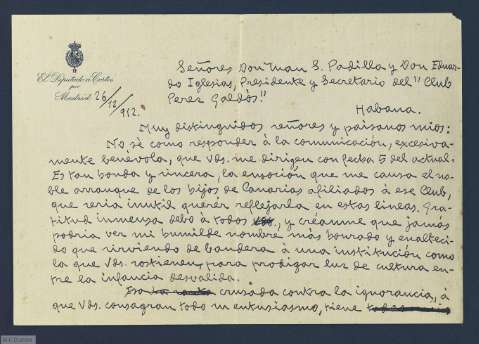 Señores Don Juan S. Padilla y Don Eduar-
do Iglesias, Presidente y Secretario del "Club
Perez Galdós."
El Diputado a Cortes
por
Madrid
26/12/912.
Habana.
Muy distinguidos señores y paisanos mios:
No sé como responder à la comunicación, excesiva-
mente benévola, que Vds. me dirigen con fecha 5 del actual.
Es tan honda y sincera, la emoción que me causa el no-
ble arranque de los hijos de Canarias afiliados à ese Club,
que seria inutil querer reflejarla en estas lineas. Gra-
titud inmensa debo à todos, y créanme que jamás
podria ver mi humilde nombre más honrado y enalteci-
do que sirviendo de bandera à una institución como
la que Vds. sostienen para prodigar luz de cultura en-
tre la infancia desvalida.
cruzada contra la ignorancia, à
que Vds. consagran todo su entusiasmo, tiene